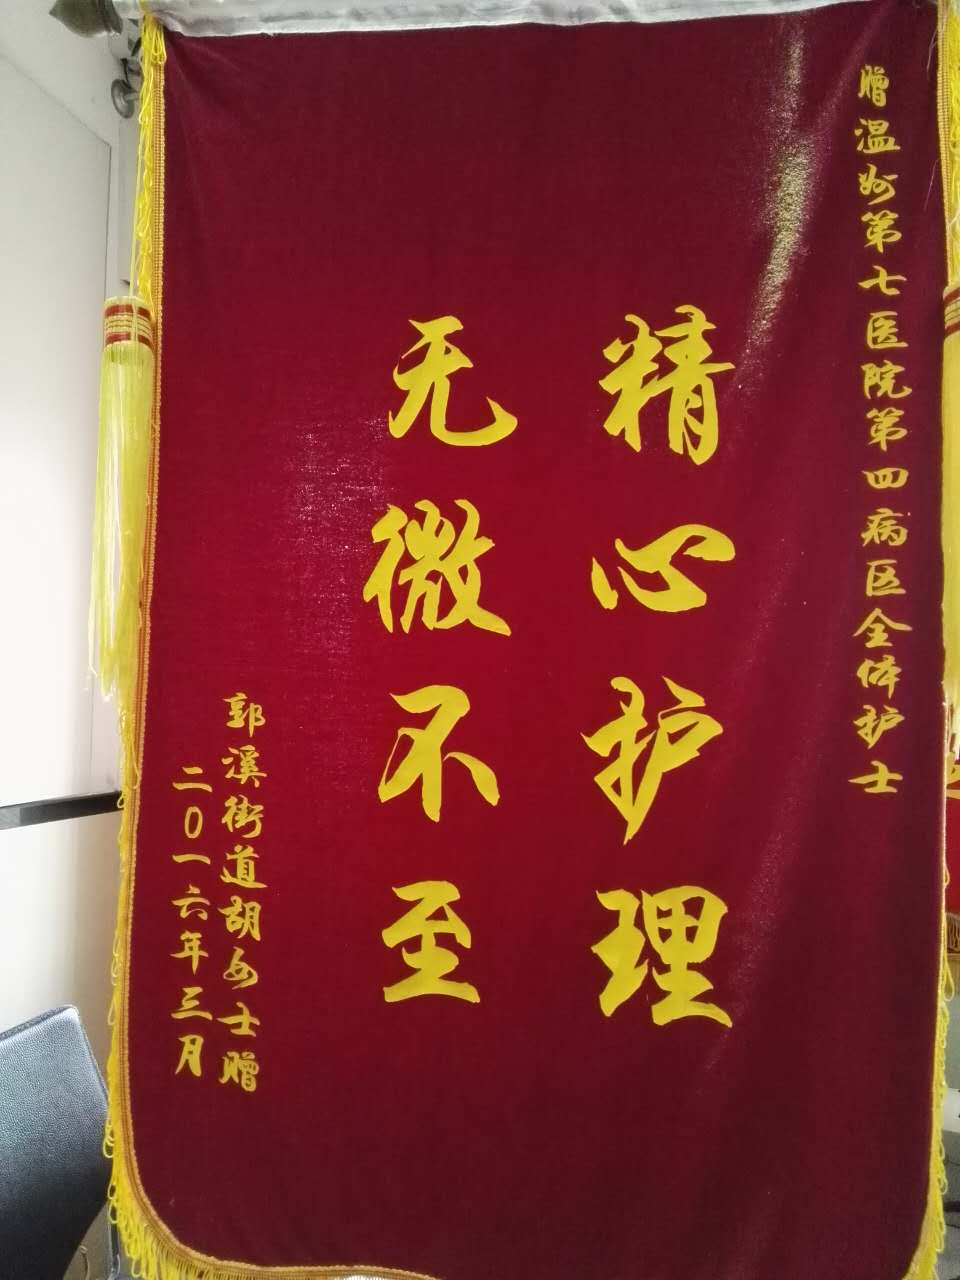 赠温州第七医院第四病区全体护士
精心护理
无微不至
郭溪街道胡女士赠
二0一六年三月